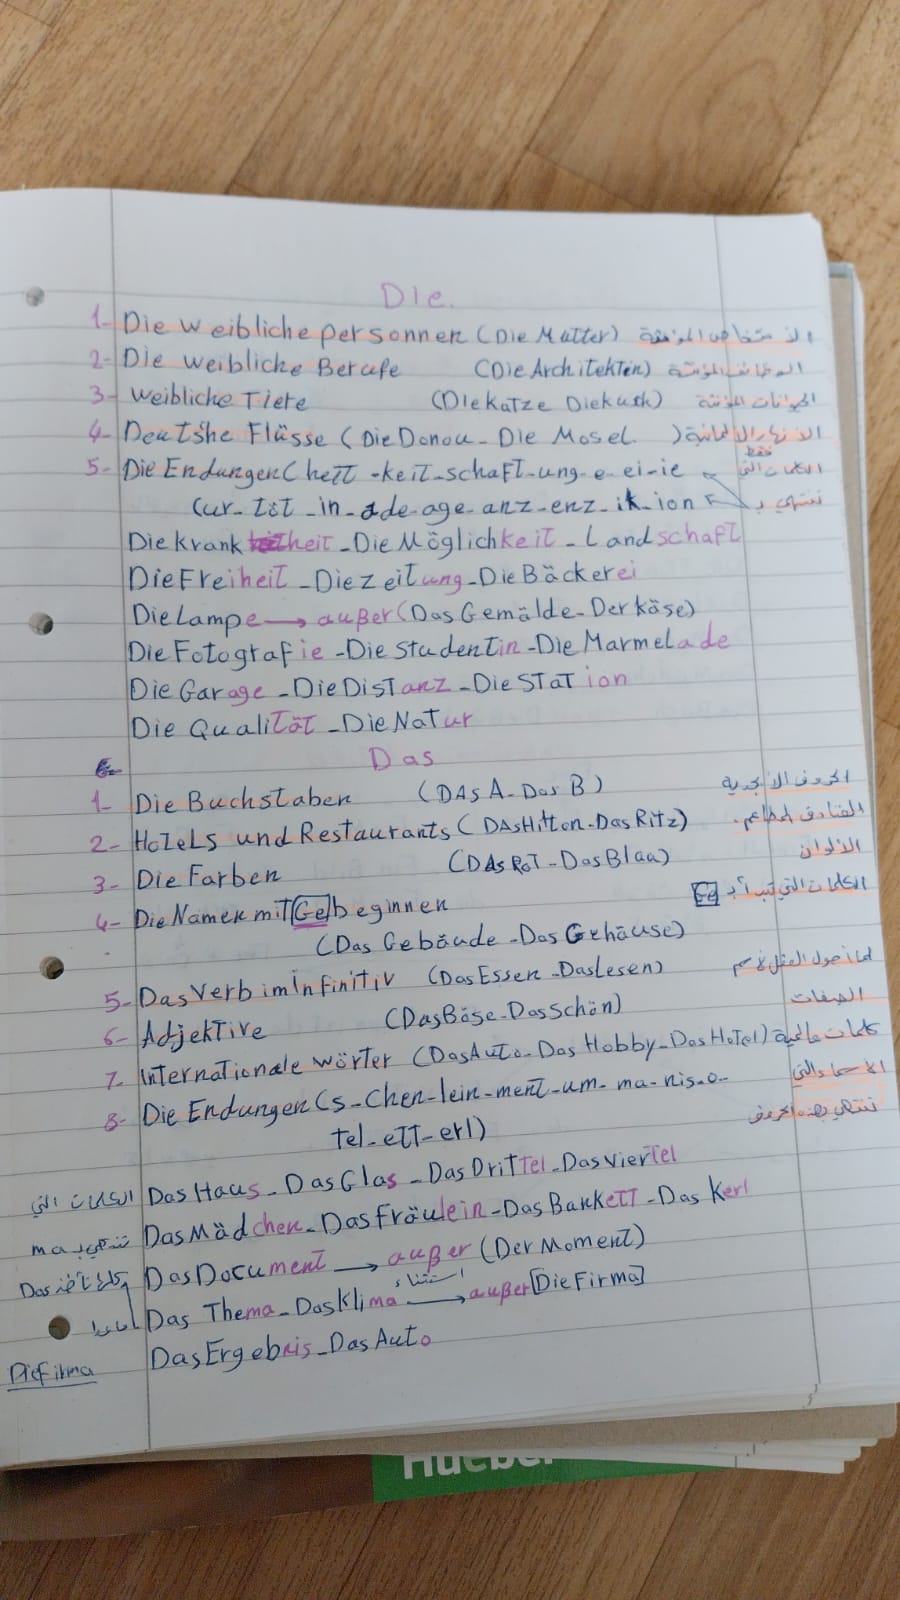 Die.
1- Die weibliche personnen (Die Mutter) الأشخاص المؤنثة
2- Die weibliche Berufe (Die Architektin) الوظائف المؤنثة
3- weibliche Tiere (Die Katze Die kuh) الحيوانات المؤنثة
4- Deutshe Flüsse (Die Donou - Die Mosel. ) الأنهار الألمانية
فقط
5- Die Endungen (heit - keit - schaft - ung - e - ei - ie الكلمات التي
(ur - tät - in - ade - age - anz - enz - ik - ion تنتهي بـ
Die Krankheit - Die Möglichkeit - Landschaft
Die Freiheit - Die Zeitung - Die Bäckerei
Die Lampe → außer (Das Gemälde - Der Käse)
Die Fotografie - Die Studentin - Die Marmelade
Die Garage - Die Distanz - Die Station
Die Qualität - Die Natur
Das
1- Die Buchstaben (DAs A - Das B) الحروف الأبجدية
2- Hotels und Restaurants (DAs Hilton - Das Ritz) الفنادق المطاعم.
3- Die Farben (DAs Rot - Das Blau) الألوان
4- Die Namen mit Ge beginnen الكلمات التي تبدأ بـ Ge
(Das Gebäude - Das Gehäuse)
5- Das Verb im Infinitiv (Das Essen - Das Lesen) لما نحول الفعل لاسم
6- Adjektive (Das Böse - Das Schön) الصفات
7- Internationale wörter (Das Auto - Das Hobby - Das Hotel) كلمات عالمية
8- Die Endungen (s - Chen - lein - ment - um - ma - nis - o - الأسماء التي
tel - ett - erl) تنتهي بهذه الحروف
Das Haus - Das Glas - Das Drittel - Das Viertel
الكلمات التي
Das Mädchen - Das Fräulein - Das Bankett - Das Kerl
تنتهي بـ ma
Das Document → außer (Der Moment)
Das
استثناء
Das Thema - Das Klima → außer [Die Firma]
ماعدا
Das Ergebnis - Das Auto
Die Firma
Hueber